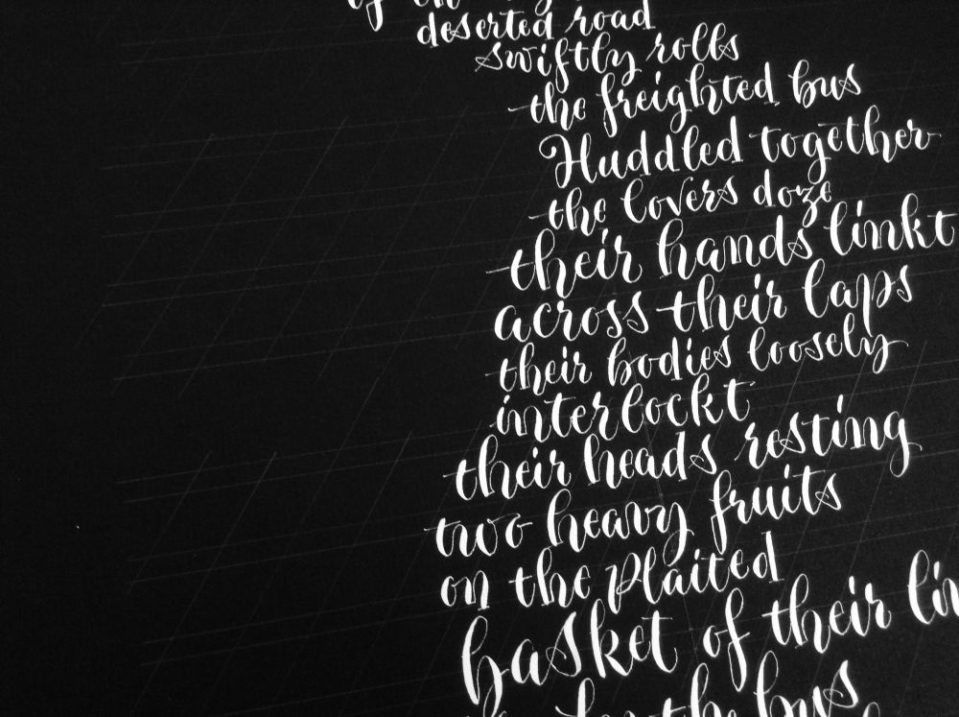 deserted road
swiftly rolls
the freighted bus
Huddled together
the lovers doze
their hands linkt
across their laps
their bodies loosely
interlockt
their heads resting
two heavy fruits
on the plaited
basket of their
the bus